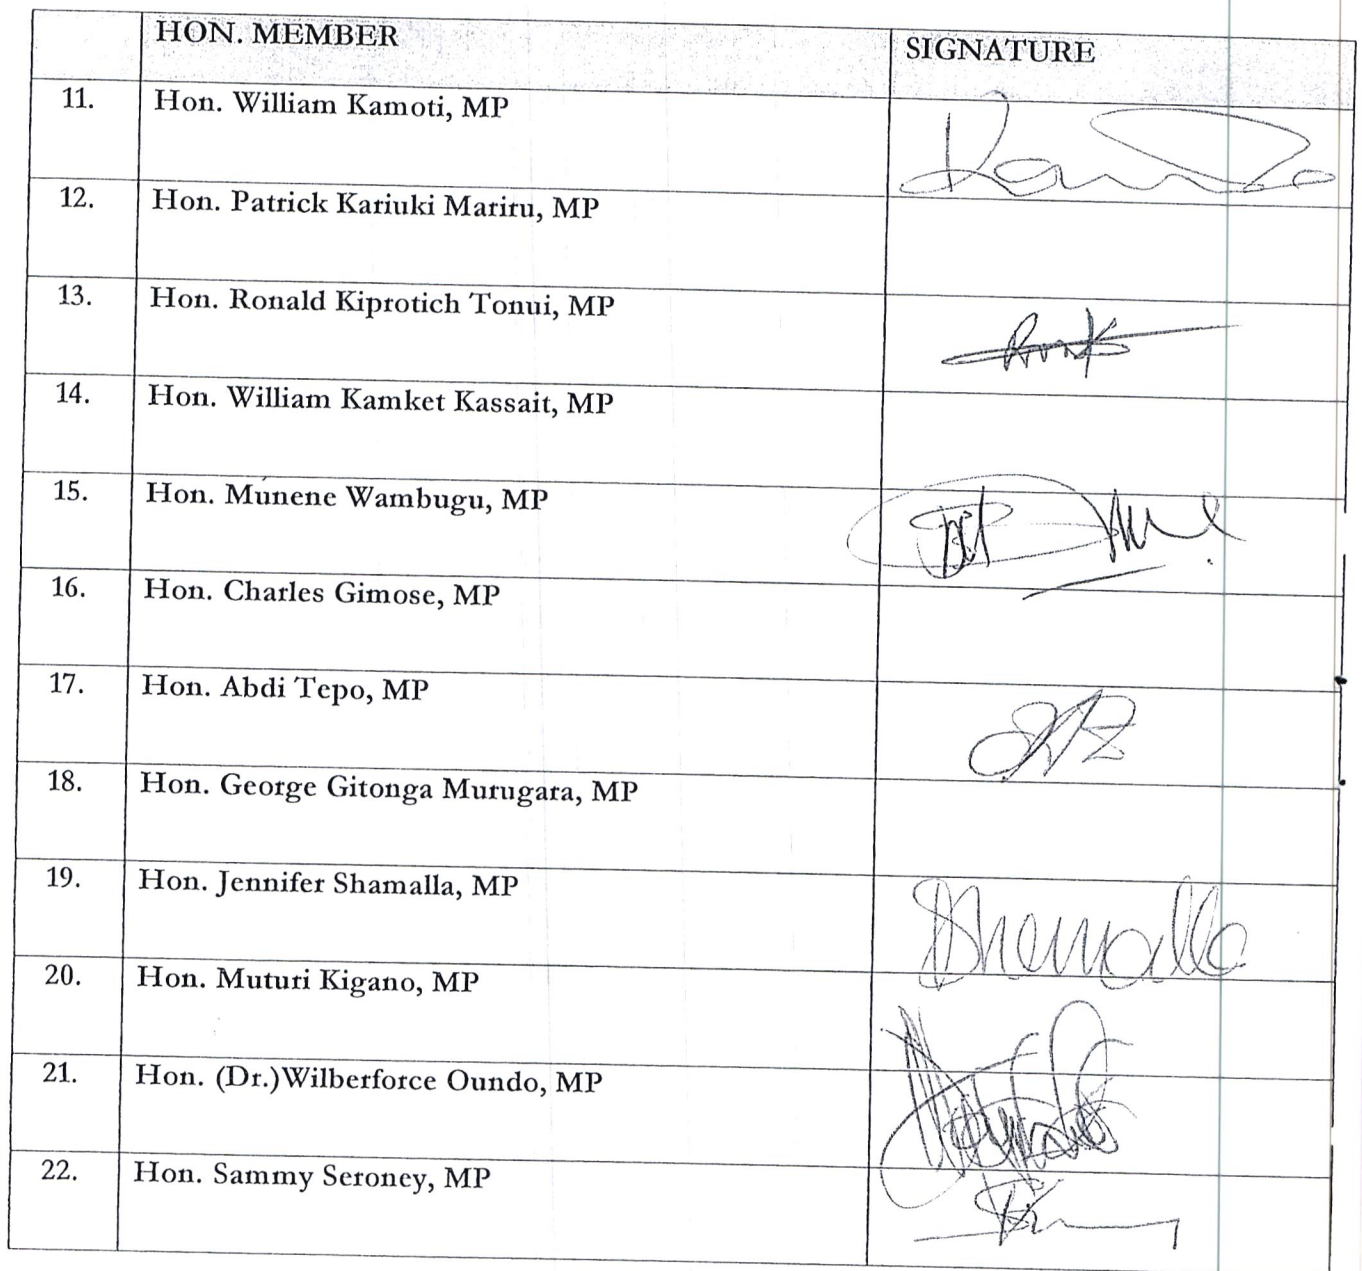 HON. MEMBER SIGNATURE
11. Hon. William Kamoti, MP
12. Hon. Patrick Kariuki Mariru, MP
13. Hon. Ronald Kiprotich Tonui, MP
14. Hon. William Kamket Kassait, MP
15. Hon. Munene Wambugu, MP
16. Hon. Charles Gimose, MP
17. Hon. Abdi Tepo, MP
18. Hon. George Gitonga Murugara, MP
19. Hon. Jennifer Shamalla, MP Shamalla
20. Hon. Muturi Kigano, MP
21. Hon. (Dr.)Wilberforce Oundo, MP
22. Hon. Sammy Seroney, MP